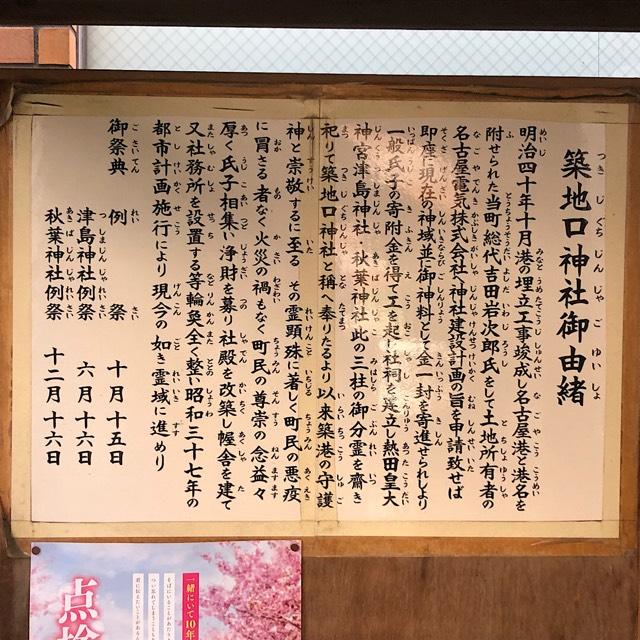 築地口神社御由緒
明治四十年十月港の埋立工事竣成し名古屋港と港名を
附せられた当町総代吉田岩次郎氏をして土地所有者の
名古屋電気株式会社へ神社建設計画の旨を申請致せば
即座に現在の神域並に御神料として金一封を寄進せられしより
一般氏子の寄附金を得て工を起し社祠を建立し熱田皇大
神宮津島神社・秋葉神社此の三柱の御分霊を齋き
祀りて築地口神社と稱へ奉りたるより以来築港の守護
神と崇敬するに至る その霊顕殊に著しく町民の悪疫
に冒さる者なく火災の禍もなく町民の尊崇の念益々
厚く氏子相集い浄財を募り社殿を改築し幄舎を建て
又社務所を設置する等輪奐全く整い昭和三十七年の
都市計画施行により現今の如き霊域に進めり
御祭典 例祭 十月十五日
津島神社例祭 六月十六日
秋葉神社例祭 十二月十六日
一緒にいて10年
点検